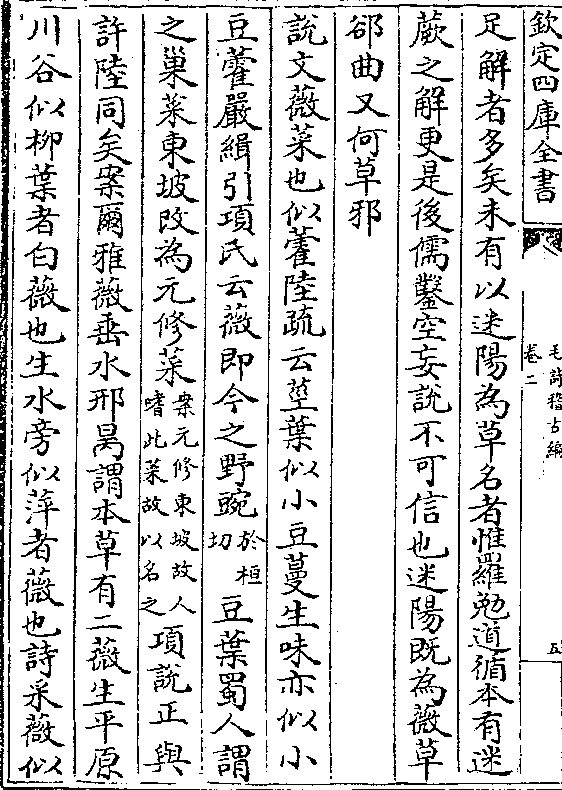 欽定四庫全書
毛詩稽古編
卷二
五
足解者多矣未有以迷陽為草名者惟羅勉道循本有迷
蕨之解更是後儒鑿空妄說不可信也迷陽既為薇草
郤曲又何草邪
說文薇菜也似藿陸疏云莖葉似小豆蔓生味亦似小
豆藿嚴緝引項氏云薇即今之野豌於桓切豆葉蜀人謂
之巢菜東坡改為元修菜案元修東坡故人嗜此菜故以名之項說正與
許陸同矣案爾雅薇垂水邢昺謂本草有二薇生平原
川谷似柳葉者白薇也生水旁似萍者薇也詩采薇似